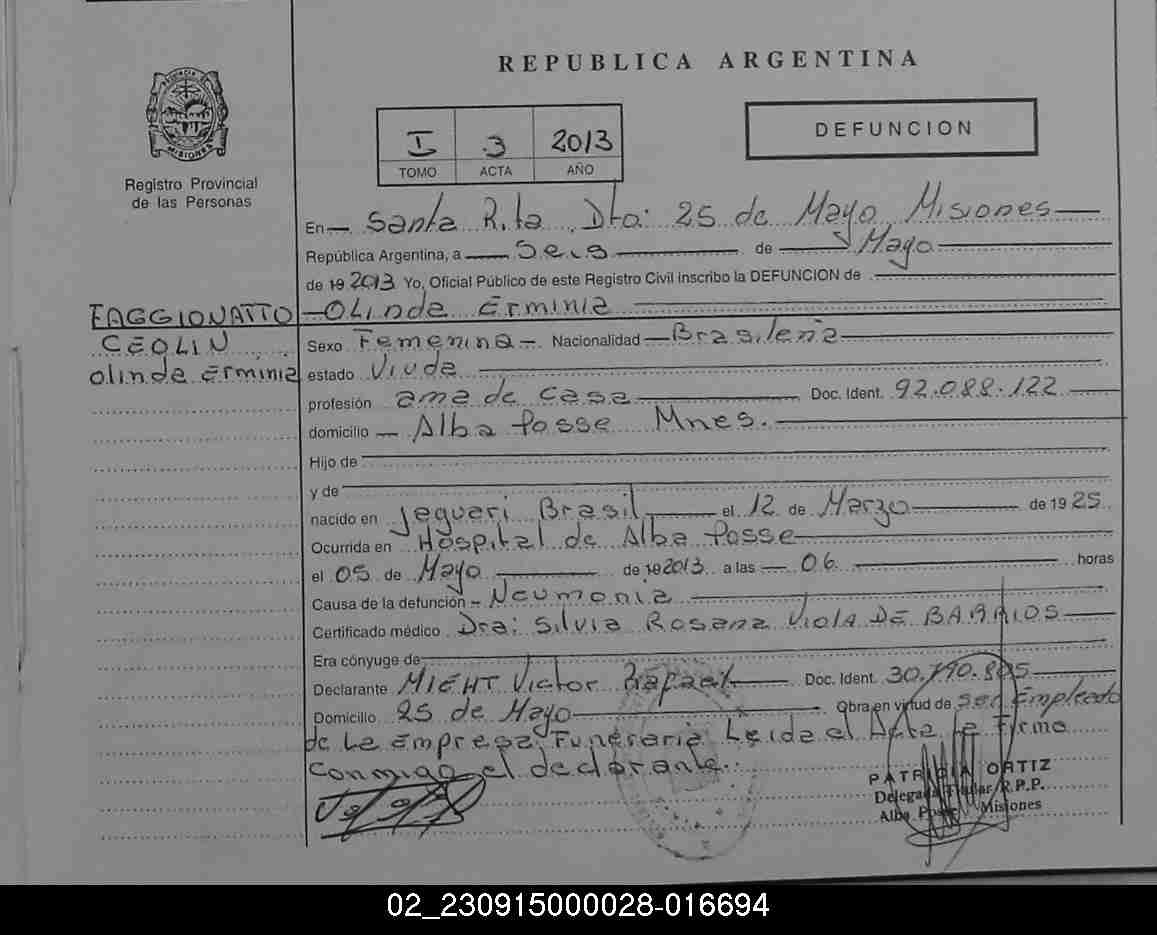 REPUBLICA ARGENTINA
PROVINCIA DE MISIONES
Registro Provincial
de las Personas
I 3 2013
TOMO ACTA AÑO
DEFUNCION
En Santa Rita Dto: 25 de Mayo Misiones
República Argentina, a Seis de Mayo
de 19 2013 Yo, Oficial Público de este Registro Civil inscribo la DEFUNCION de
FAGGIONATTO Olinda Erminia
CEOLIN Sexo Femenina Nacionalidad Brasileña
olinda Erminia estado Viuda
profesión ama de casa Doc. Ident. 92.088.122
domicilio Alba Posse Mnes.
Hijo de
y de
nacido en Jegueri Brasil el 12 de Marzo de 1925
Ocurrida en Hospital de Alba Posse
el 05 de Mayo de 19 2013 a las 06 horas
Causa de la defunción Neumonia
Certificado médico Dra: Silvia Rosana Viola DE BARRIOS
Era cónyuge de
Declarante MIEHT Victor Rafael Doc. Ident. 30.790.805
Domicilio 25 de Mayo Obra en virtud de ser Empleado
de La Empresa Funeraria Leida el Acta la Firma
conmigo el declarante.
PATRICIA ORTIZ
Delegada Titular R.P.P.
Alba Posse Misiones
02_230915000028-016694